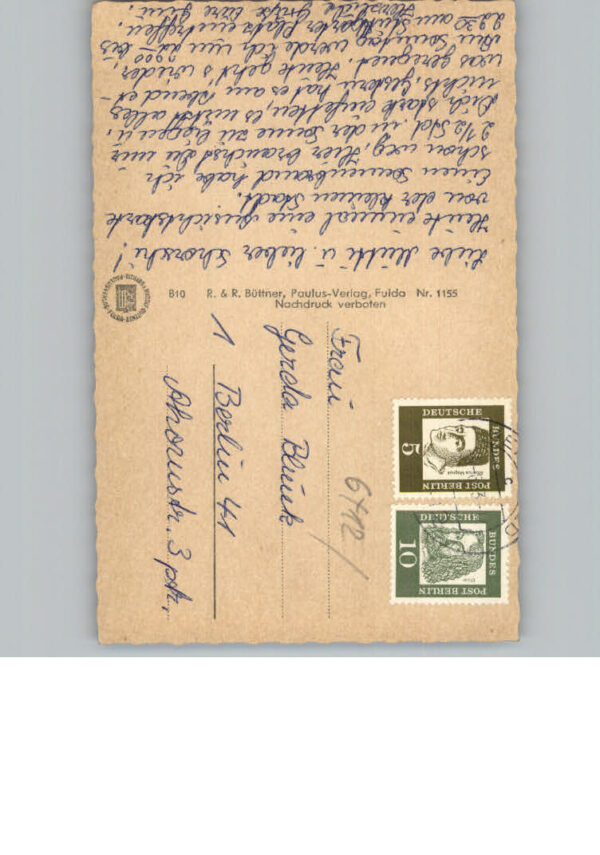 Liebe Mutti u. lieber Schorschi!
Heute einmal eine Ansichtskarte
von der kleinen Stadt.
Einen Sonnenbrand habe ich
schon weg, Hier brauchst Du nur
2 1/2 Std. in der Sonne zu liegen u.
Dich stark einfetten, es nützt alles
nichts, gestern hat es am Abend et-
was geregnet. Heute geht's wieder,
Am Sonntag werde ich um 22 - bis 2200
2230 am Stuttgarter Platz eintreffen.
Herzliche Grüße Eure
B10 R. & R. Büttner, Paulus-Verlag, Fulda Nr. 1155
Nachdruck verboten
DEUTSCHE
BUNDES
POST BERLIN
5
Albertus Magnus
DEUTSCHE
BUNDES
POST BERLIN
10
Dürer
6412/
Frau
Gerda Blunk
1 Berlin 41
Ahornstr. 3 ptr.